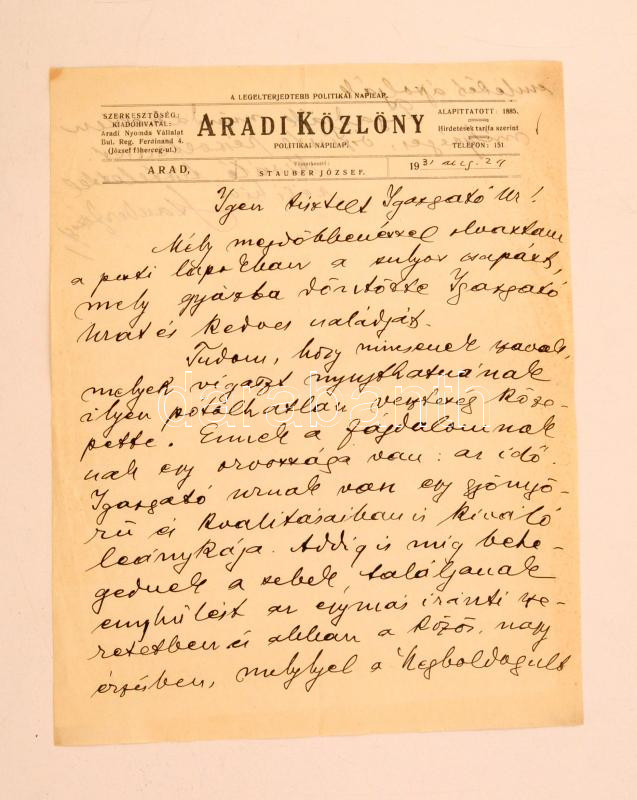 A LEGELTERJEDTEBB POLITIKAI NAPILAP.
SZERKESZTŐSÉG:
KIADÓHIVATAL:
Aradi Nyomda Vállalat
Bul. Reg. Ferdinand 4.
(József főherceg-ut.)
ARADI KÖZLÖNY
POLITIKAI NAPILAP.
ALAPITTATOTT: 1885.
Hirdetések tarifa szerint
TELEFON: 151
ARAD,
Főszerkesztő:
STAUBER JÓZSEF.
1931 aug. 24
Igen tisztelt Igazgató Ur!
Mély megdöbbenéssel olvastam
a pesti lapokban a sulyos csapást,
mely gyászba döntötte Igazgató
urat és kedves családját.
Tudom, hogy nincsenek szavak,
melyek vigaszt nyujthatnának
ilyen pótolhatlan veszteség köze-
pette. Ennek a fájdalomnak
nak egy orvossága van: az idő.
Igazgató urnak van egy gyönyö-
rű és kvalitásaiban is kiváló
leánykája. Addig is mig behe-
gednek a sebek, találjanak
enyhülést az egymás iránti sze-
retetben és abban a közös, nagy
érzésben, melylyel a Megboldogult
darabanth